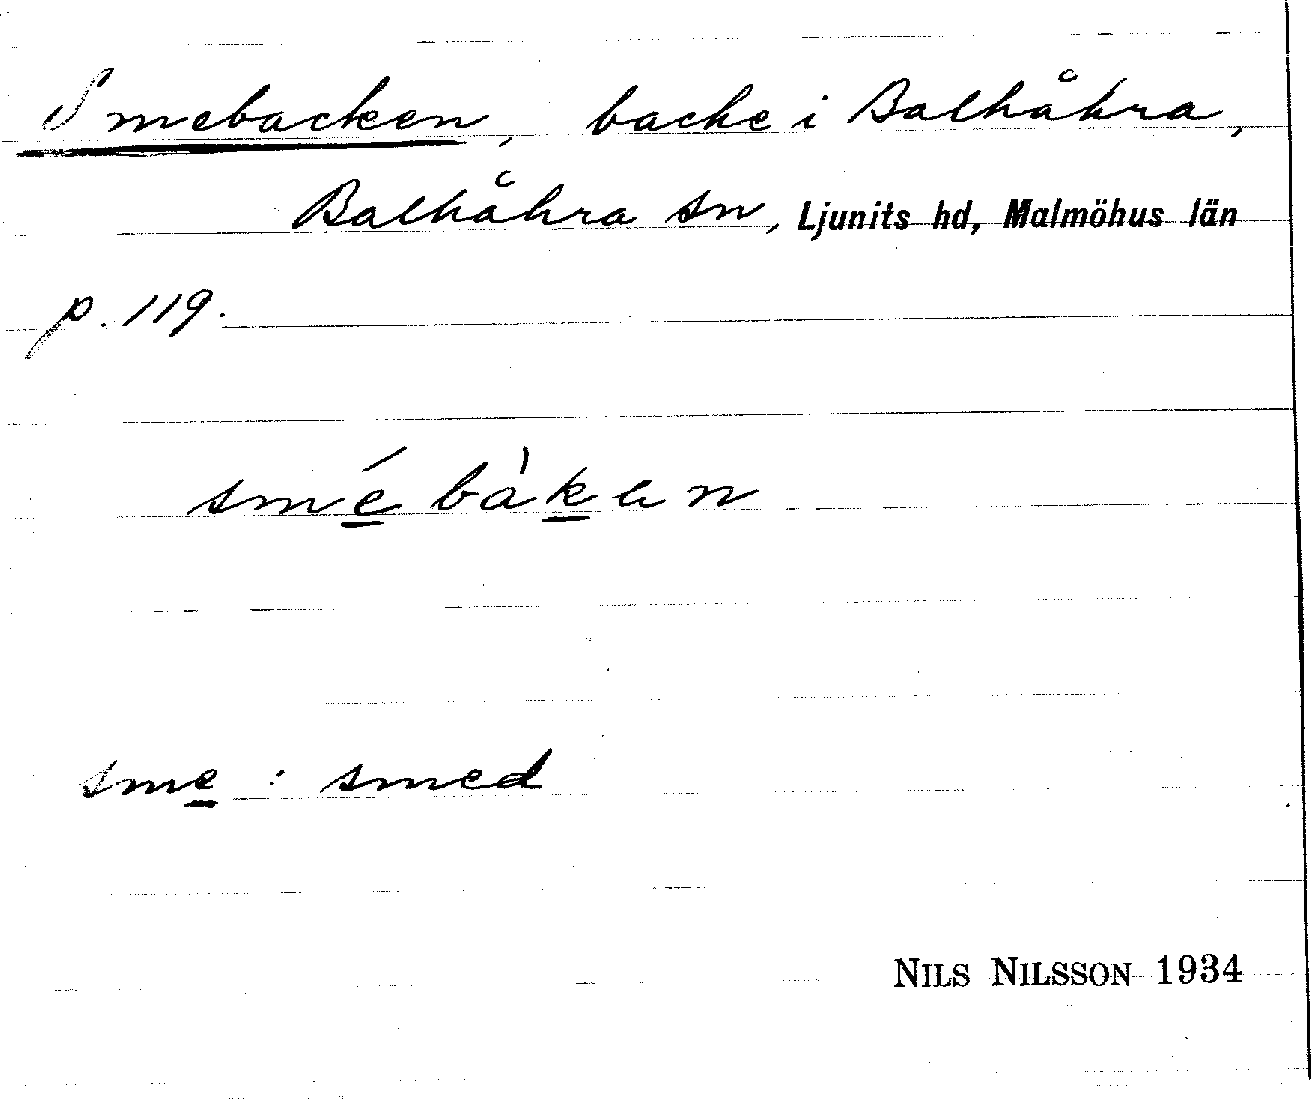 Smebacken, backe i Balkåkra,
Balkåkra sn, Ljunits hd, Malmöhus län
p. 119.
smé bàkən
sme : smed
NILS NILSSON 1934